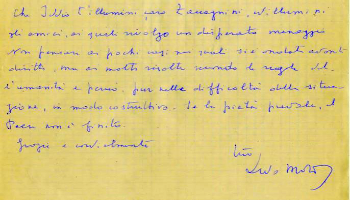 Che Iddio l'illumini, caro Zaccagnini, ed illumini
gli amici, ai quali rivolgo un disperato messaggio
Non pensare ai pochi casi nei quali si è andati avanti
diritti, ma ai molti risolti secondo le regole del
l'umanità e perciò, pur nelle difficoltà della situa
zione, in modo costruttivo. Se la pietà prevale, il
Paese non è finito.
Grazie e cordialmente
tuo
Aldo Moro